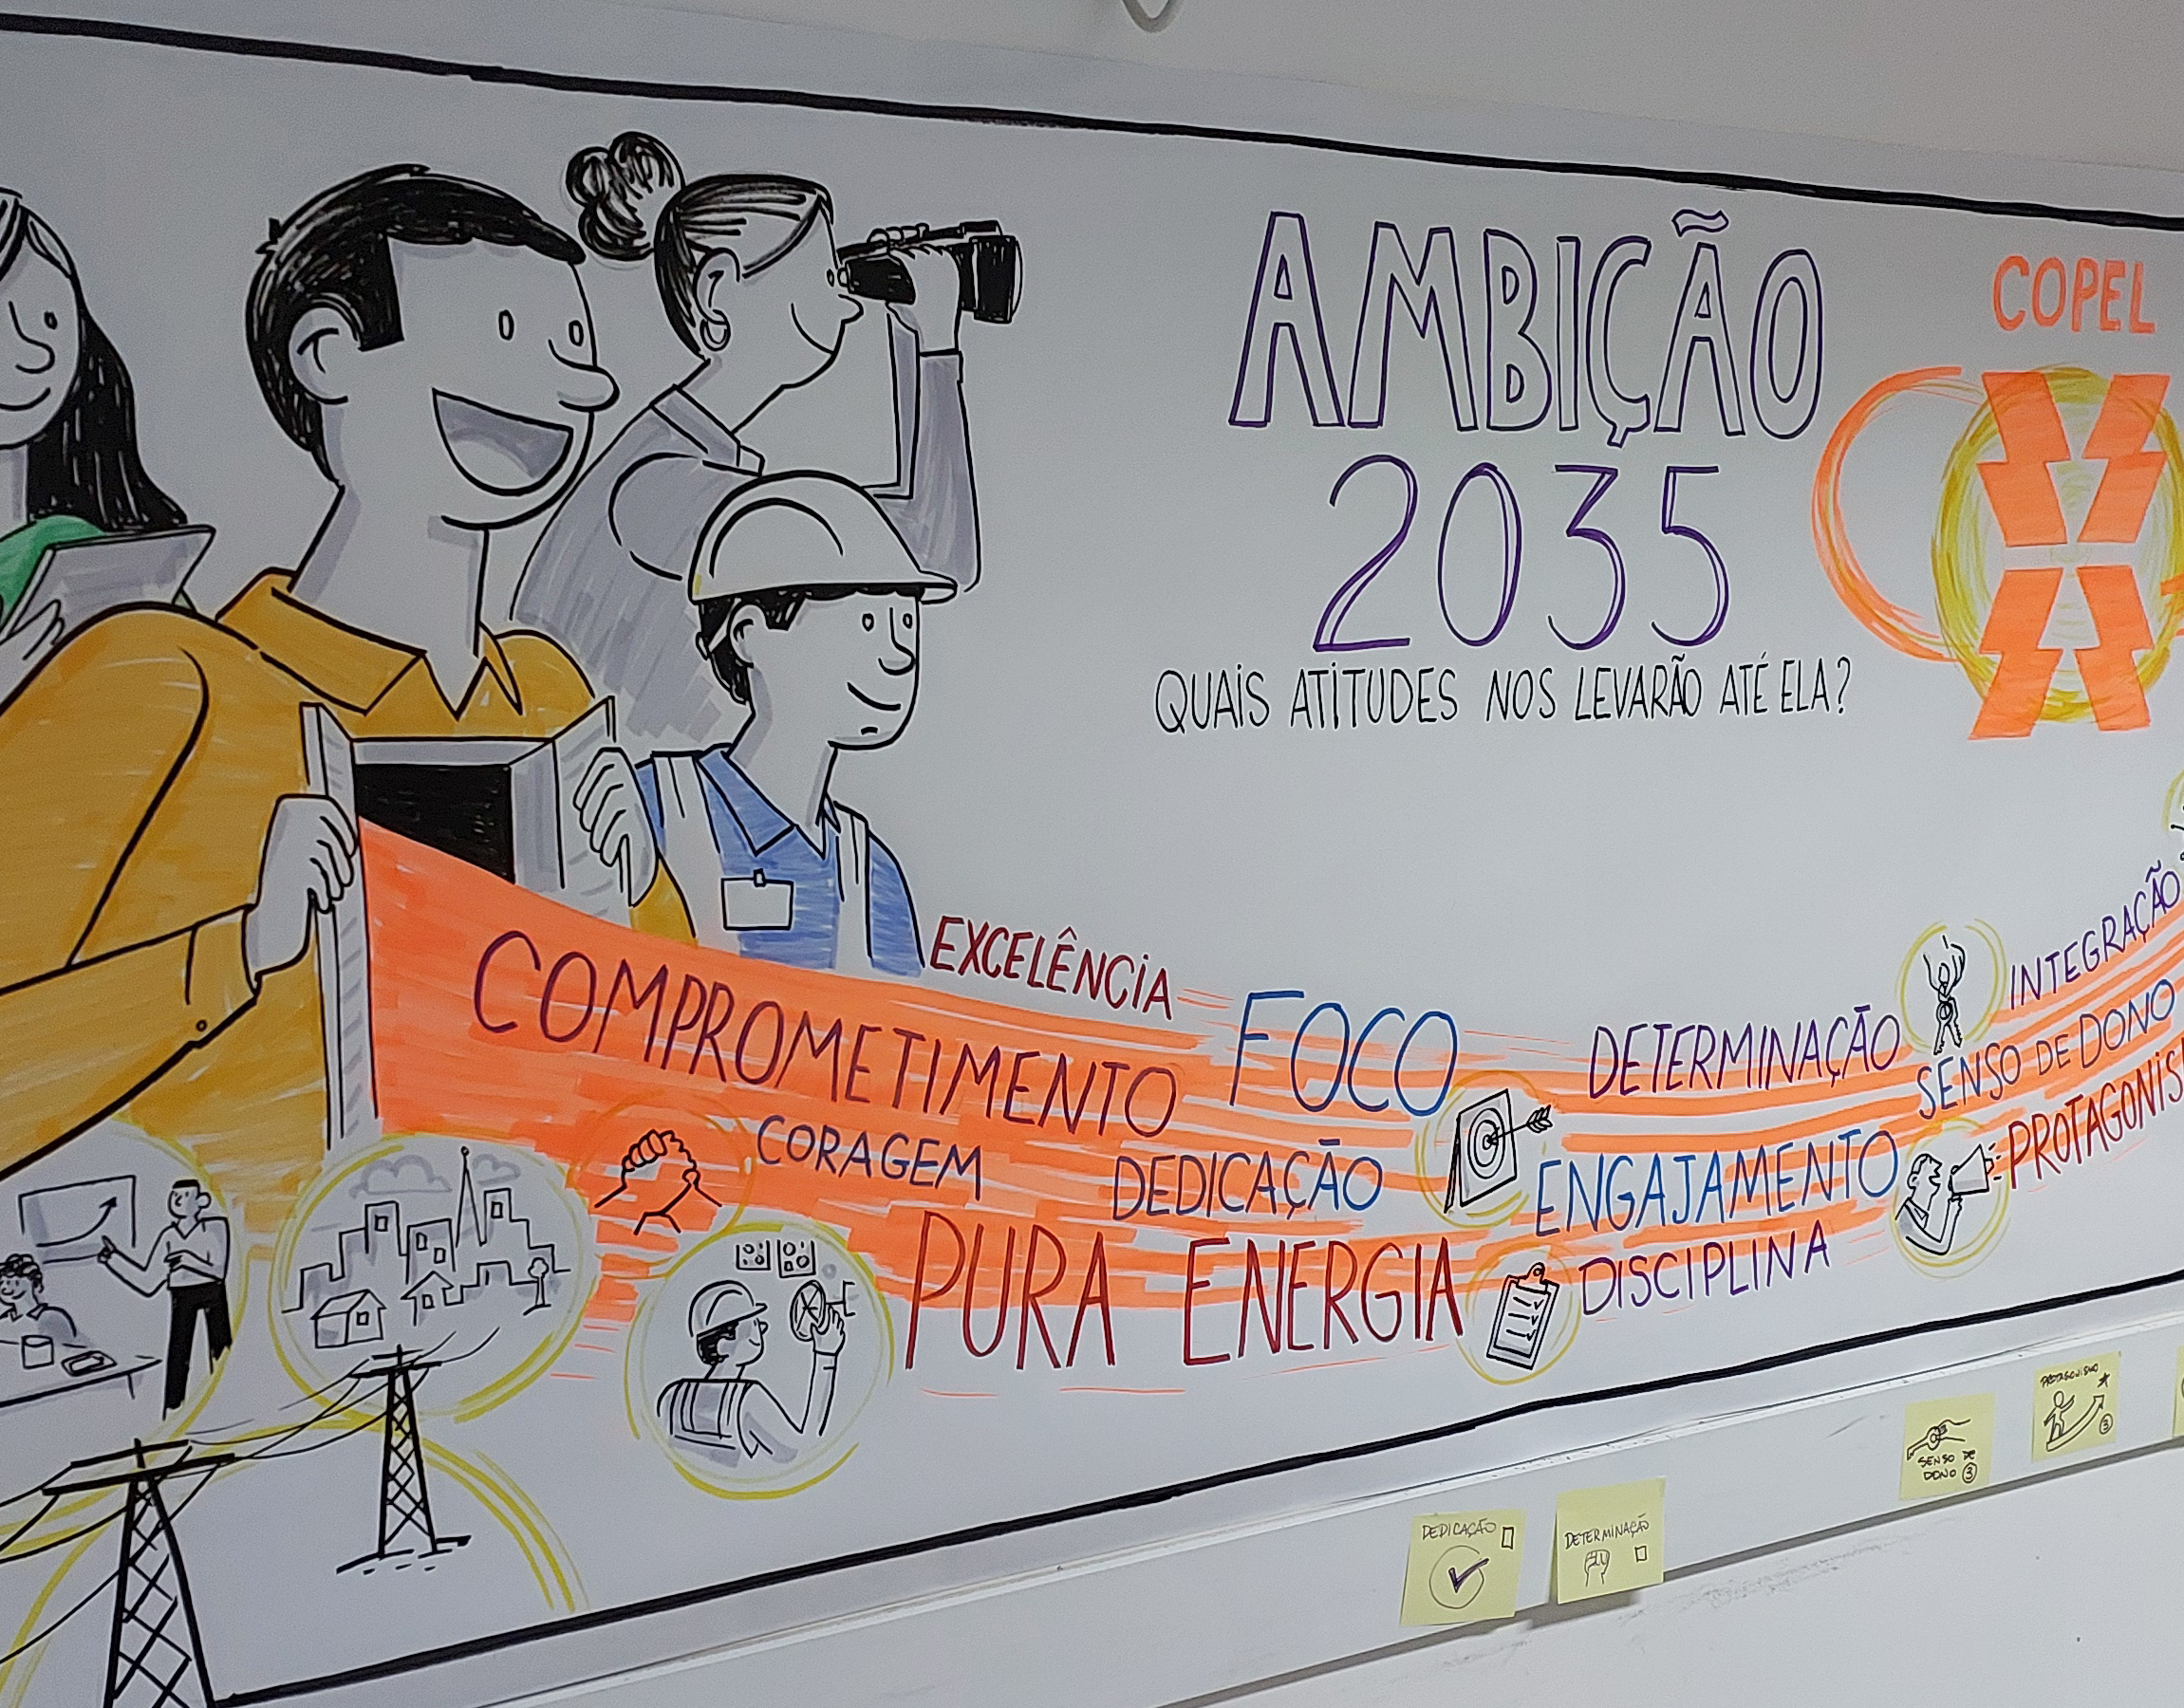 AMBIÇÃO
2035
QUAIS ATITUDES NOS LEVARÃO ATÉ ELA?
COPEL
EXCELÊNCIA
COMPROMETIMENTO
FOCO
DETERMINAÇÃO
INTEGRAÇÃO
SENSO DE DONO
CORAGEM
DEDICAÇÃO
ENGAJAMENTO
PROTAGONIS
PURA ENERGIA
DISCIPLINA
PROTAGONISMO
3
SENSO DE
DONO 3
DEDICAÇÃO
DETERMINAÇÃO